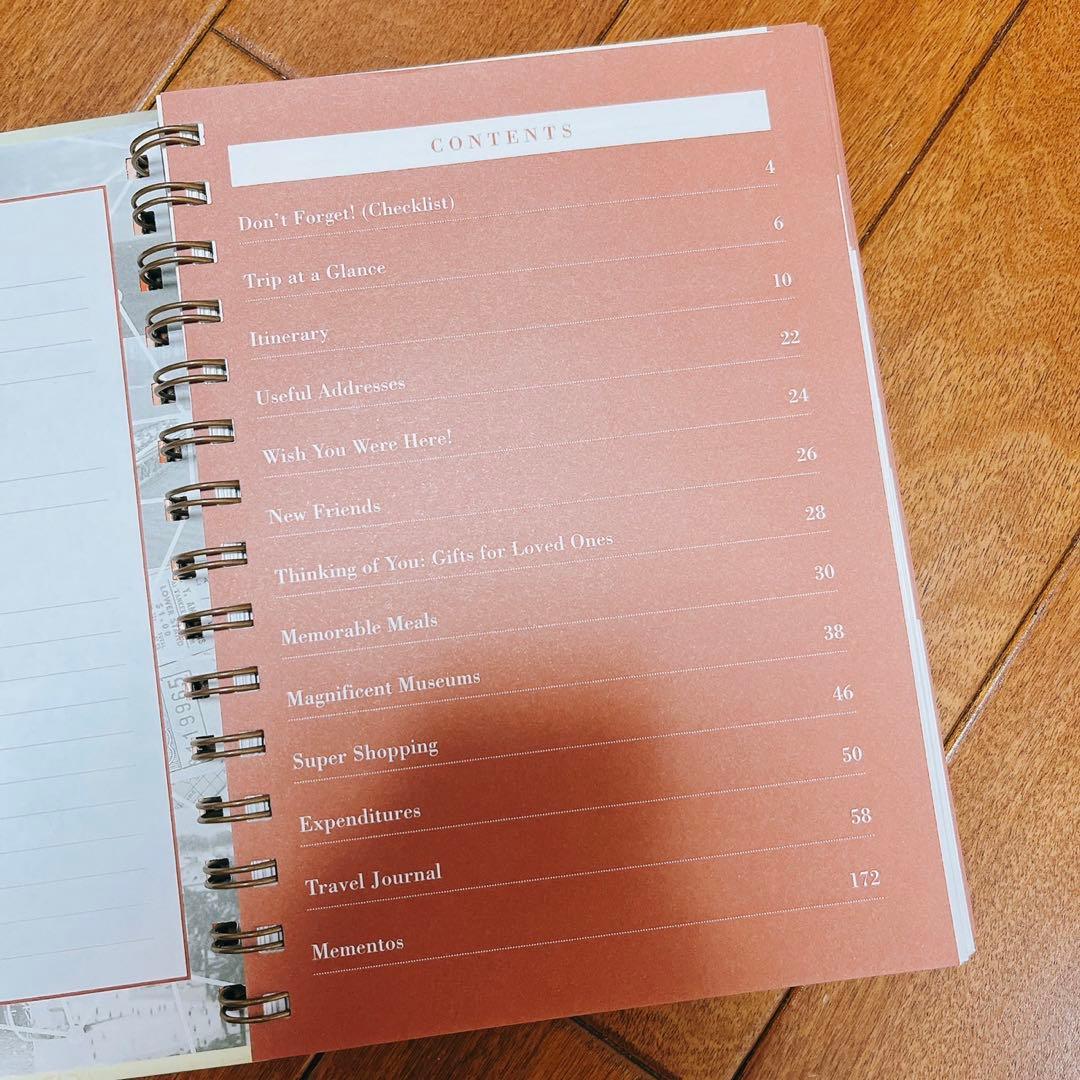 CONTENTS
Don't Forget! (Checklist) 4
Trip at a Glance 6
Itinerary 10
Useful Addresses 22
Wish You Were Here! 24
New Friends 26
Thinking of You: Gifts for Loved Ones 28
Memorable Meals 30
Magnificent Museums 38
Super Shopping 46
Expenditures 50
Travel Journal 58
Mementos 172